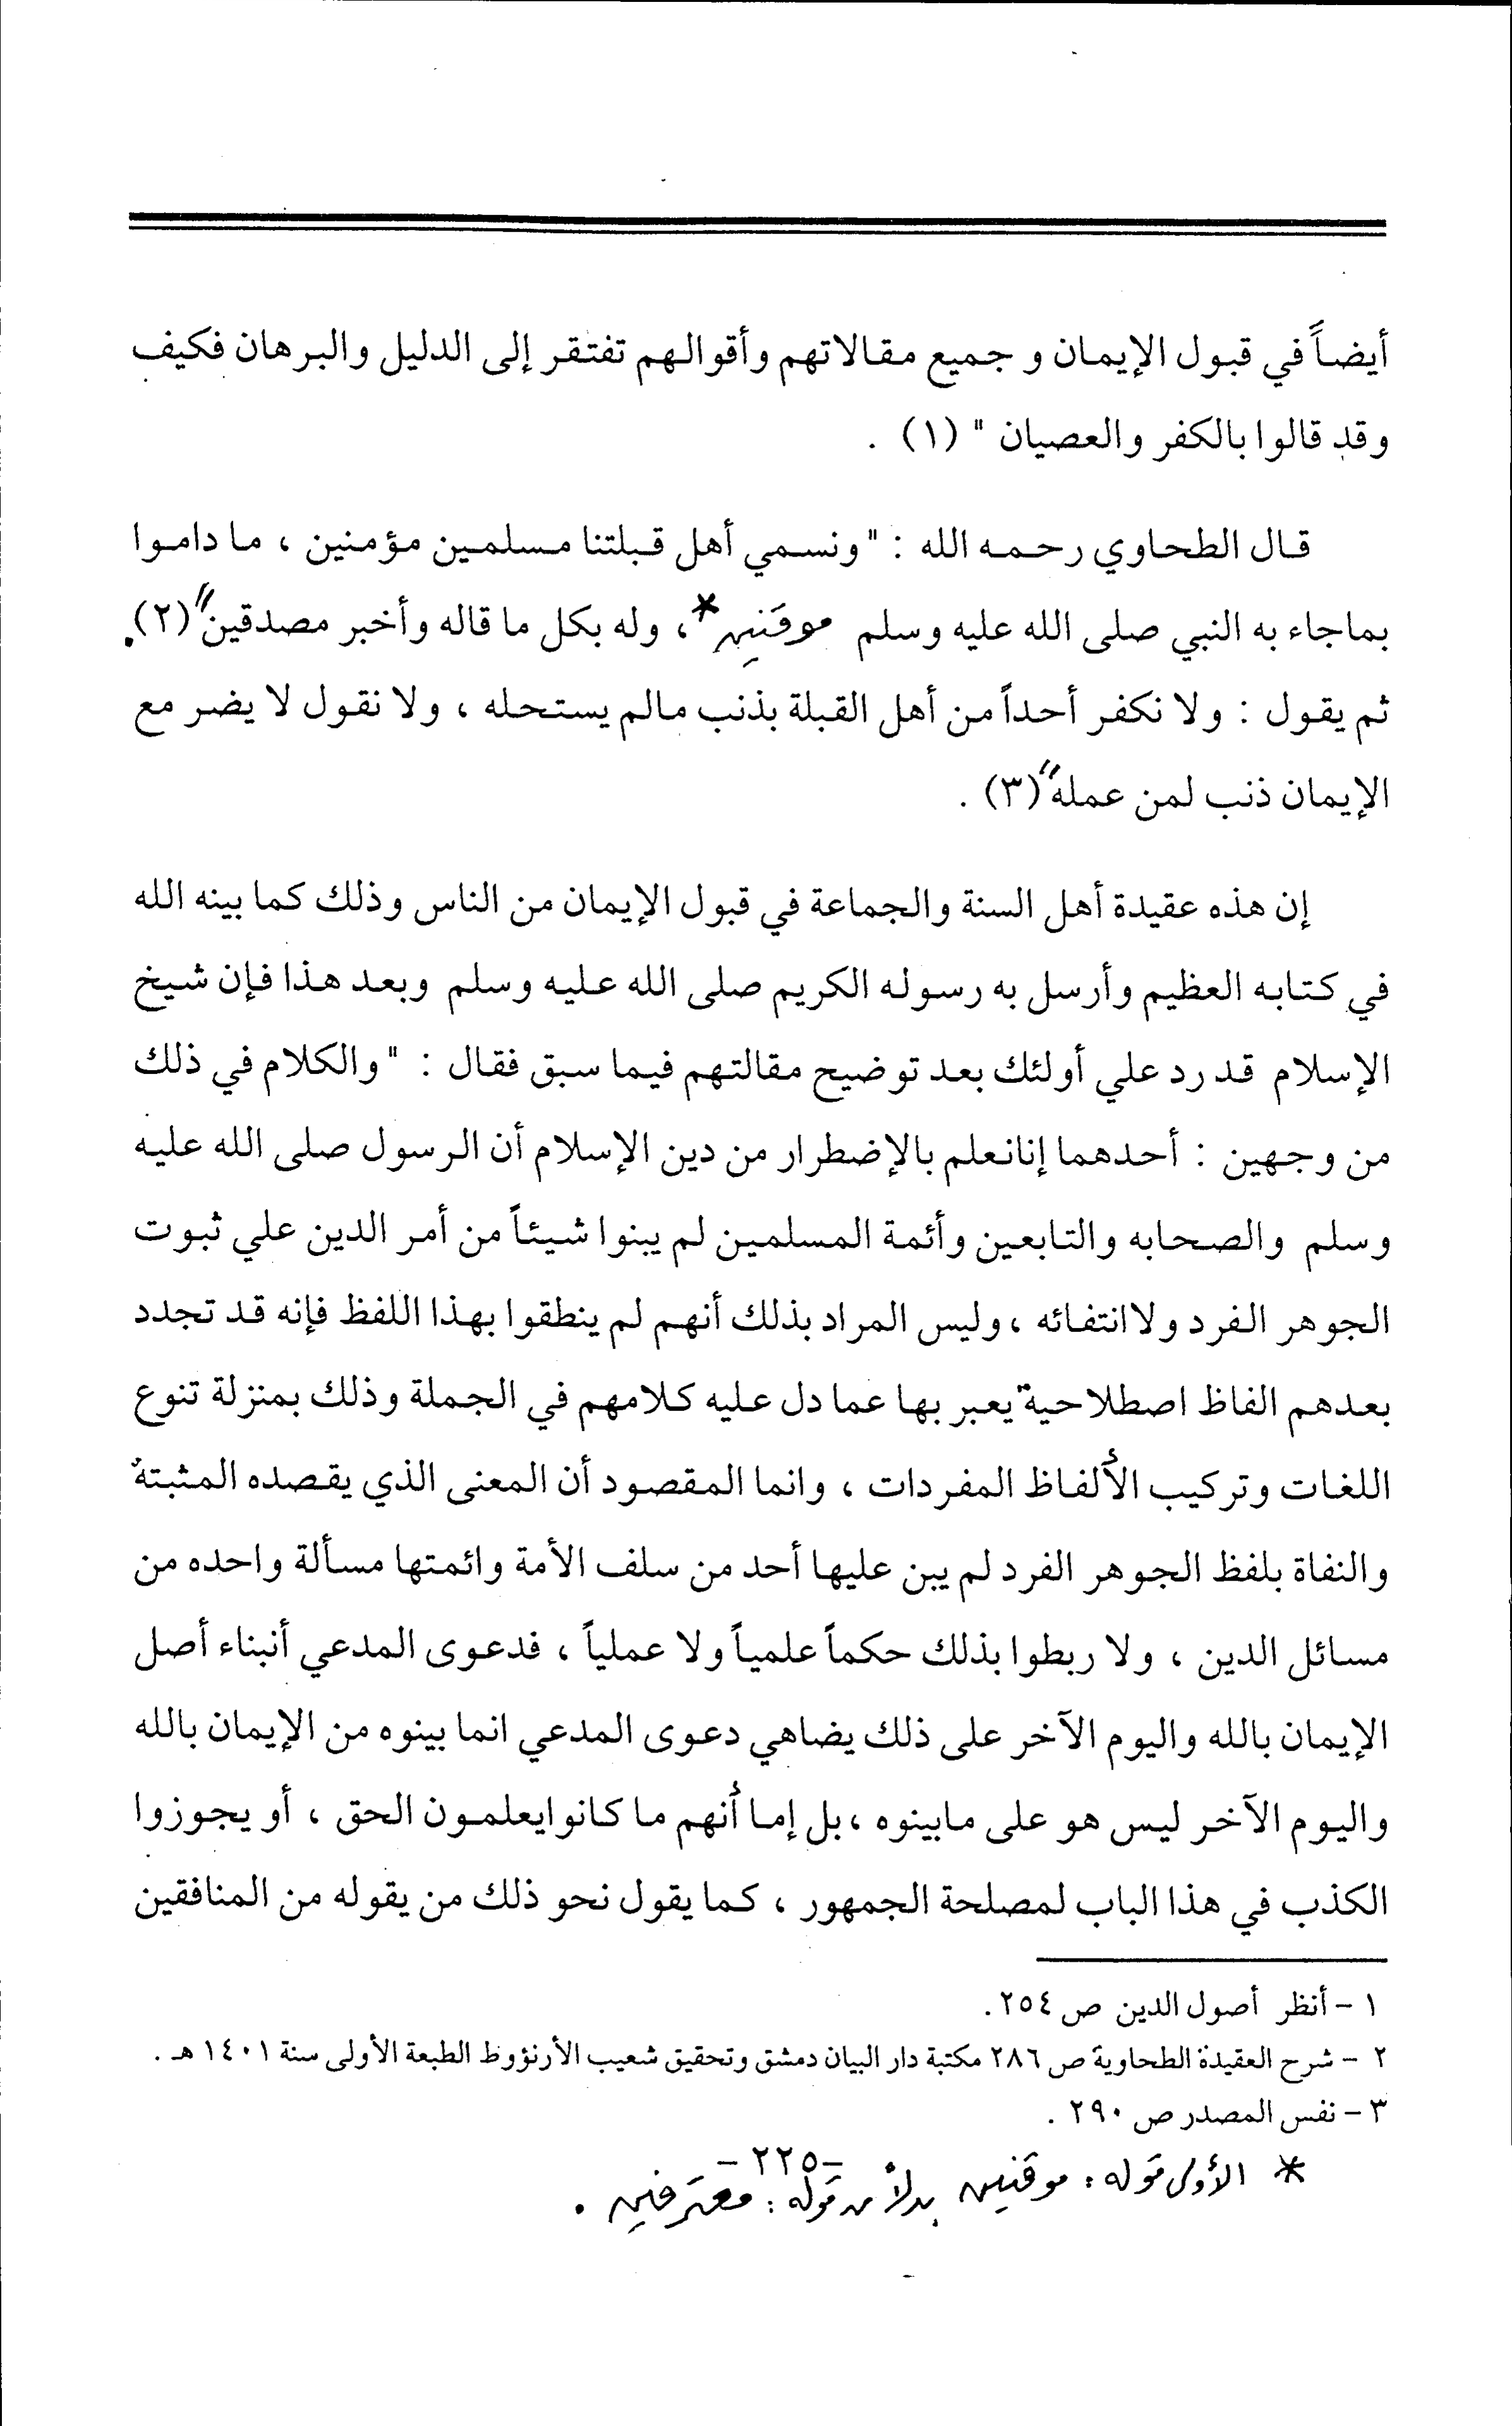 أيضاً في قبول الإيمان و جميع مقالاتهم وأقوالهم تفتقر إلى الدليل والبرهان فكيف
وقد قالوا بالكفر والعصيان " (١) .
قال الطحاوي رحمه الله : " ونسمي أهل قبلتنا مسلمين مؤمنين ، ما داموا
بماجاء به النبي صلى الله عليه وسلم موقنين*، وله بكل ما قاله وأخبر مصدقين" (٢).
ثم يقول : ولا نكفر أحداً من أهل القبلة بذنب مالم يستحله ، ولا نقول لا يضر مع
الإيمان ذنب لمن عمله" (٣) .
إن هذه عقيدة أهل السنة والجماعة في قبول الإيمان من الناس وذلك كما بينه الله
في كتابه العظيم وأرسل به رسوله الكريم صلى الله عليه وسلم وبعد هذا فإن شيخ
الإسلام قد رد علي أولئك بعد توضيح مقالتهم فيما سبق فقال : " والكلام في ذلك
من وجهين : أحدهما إنانعلم بالإضطرار من دين الإسلام أن الرسول صلى الله عليه
وسلم والصحابه والتابعين وأئمة المسلمين لم يبنوا شيئاً من أمر الدين علي ثبوت
الجوهر الفرد ولاانتفائه ، وليس المراد بذلك أنهم لم ينطقوا بهذا اللفظ فإنه قد تجدد
بعدهم الفاظ اصطلاحية يعبر بها عما دل عليه كلامهم في الجملة وذلك بمنزلة تنوع
اللغات وتركيب الألفاظ المفردات ، وانما المقصود أن المعنى الذي يقصده المثبتة
والنفاة بلفظ الجوهر الفرد لم يبن عليها أحد من سلف الأمة وائمتها مسألة واحده من
مسائل الدين ، ولا ربطوا بذلك حكماً علمياً ولا عملياً ، فدعوى المدعي أنبناء أصل
الإيمان بالله واليوم الآخر على ذلك يضاهي دعوى المدعي انما بينوه من الإيمان بالله
واليوم الآخر ليس هو على مابينوه ،بل إما أنهم ما كانوايعلمون الحق ، أو يجوزوا
الكذب في هذا الباب لمصلحة الجمهور ، كما يقول نحو ذلك من يقوله من المنافقين
١ - أنظر أصول الدين ص ٢٥٤.
٢ - شرح العقيدة الطحاوية ص ٢٨٦ مكتبة دار البيان دمشق وتحقيق شعيب الأرنؤوط الطبعة الأولى سنة ١٤٠١ هـ .
٣ - نفس المصدر ص ٢٩٠ .
-٢٢٥-
* الأولى قوله : موقنين بدلاً من قوله : معترفين .